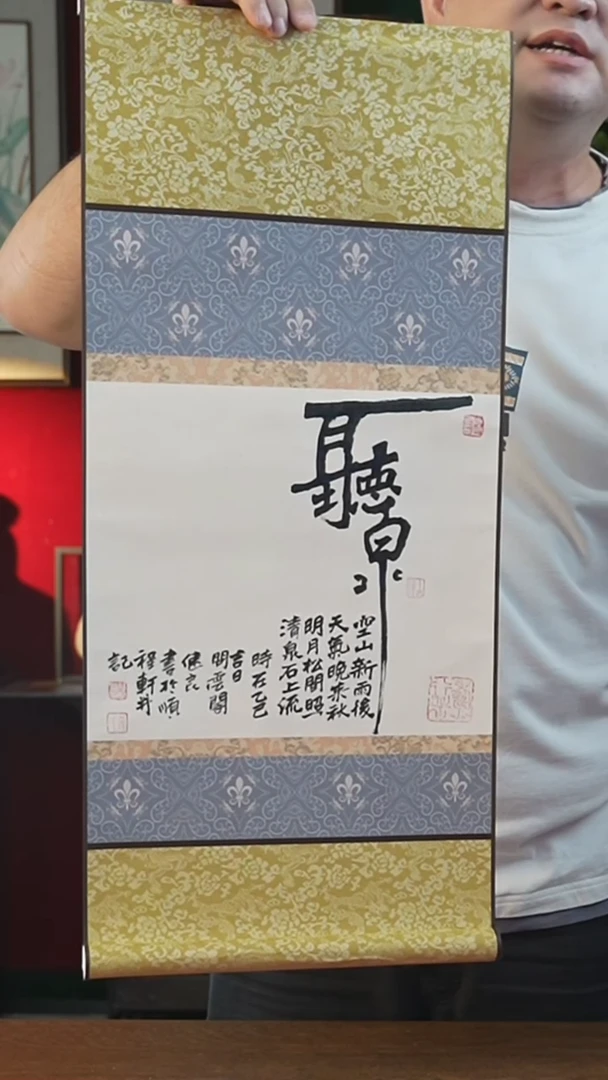 聽泉
空山新雨後
天氣晚來秋
明月松間照
清泉石上流
時在乙巳
吉日
閒雲閣
健良
書於順
程軒并
記